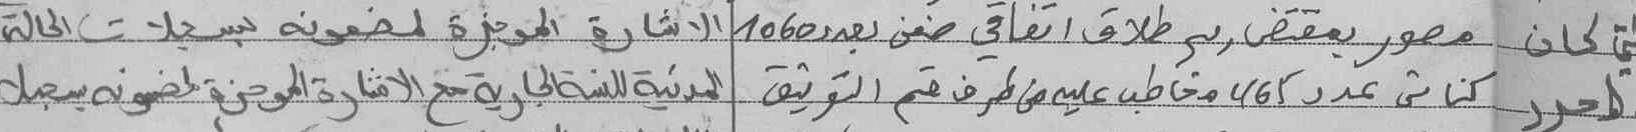 لحان مصور بمقتضى رسم طلاق اتفاقي ضمن بعدد 1060 الاشارة الموجزة لمضمونه بسجلات الحالة
المحرر كناش عدد 461 مخاطب عليه من طرف قسم التوثيق المدنية للسنة الجارية مع الاشارة الموجزة لمضمونه بسجل